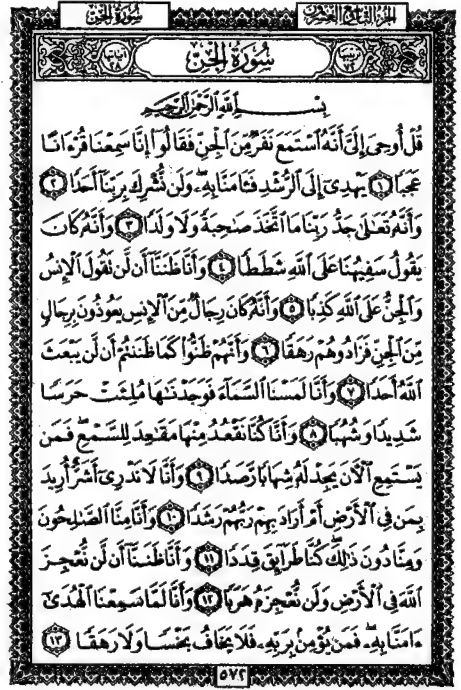 سُورَةُ الجِنّ
الجُزءُ التَّاسِعُ وَالعِشرُونَ
آيَاتُهَا ٢٨
سُورَةُ الجِنِّ
بِسْمِ اللَّهِ الرَّحْمَٰنِ الرَّحِيمِ
قُلْ أُوحِيَ إِلَيَّ أَنَّهُ ٱسْتَمَعَ نَفَرٌ مِّنَ ٱلْجِنِّ فَقَالُوٓا۟ إِنَّا سَمِعْنَا قُرْءَانًا
عَجَبًا ١ يَهْدِىٓ إِلَى ٱلرُّشْدِ فَـَٔامَنَّا بِهِۦ وَلَن نُّشْرِكَ بِرَبِّنَآ أَحَدًا ٢
وَأَنَّهُۥ تَعَٰلَىٰ جَدُّ رَبِّنَا مَا ٱتَّخَذَ صَٰحِبَةً وَلَا وَلَدًا ٣ وَأَنَّهُۥ كَانَ
يَقُولُ سَفِيهُنَا عَلَى ٱللَّهِ شَطَطًا ٤ وَأَنَّا ظَنَنَّآ أَن لَّن تَقُولَ ٱلْإِنسُ
وَٱلْجِنُّ عَلَى ٱللَّهِ كَذِبًا ٥ وَأَنَّهُۥ كَانَ رِجَالٌ مِّنَ ٱلْإِنسِ يَعُوذُونَ بِرِجَالٍ
مِّنَ ٱلْجِنِّ فَزَادُوهُمْ رَهَقًا ٦ وَأَنَّهُمْ ظَنُّوا۟ كَمَا ظَنَنتُمْ أَن لَّن يَبْعَثَ
ٱللَّهُ أَحَدًا ٧ وَأَنَّا لَمَسْنَا ٱلسَّمَآءَ فَوَجَدْنَٰهَا مُلِئَتْ حَرَسًا
شَدِيدًا وَشُهُبًا ٨ وَأَنَّا كُنَّا نَقْعُدُ مِنْهَا مَقَٰعِدَ لِلسَّمْعِ فَمَن
يَسْتَمِعِ ٱلْـَٔانَ يَجِدْ لَهُۥ شِهَابًا رَّصَدًا ٩ وَأَنَّا لَا نَدْرِىٓ أَشَرٌّ أُرِيدَ
بِمَن فِى ٱلْأَرْضِ أَمْ أَرَادَ بِهِمْ رَبُّهُمْ رَشَدًا ١٠ وَأَنَّا مِنَّا ٱلصَّٰلِحُونَ
وَمِنَّا دُونَ ذَٰلِكَ كُنَّا طَرَآئِقَ قِدَدًا ١١ وَأَنَّا ظَنَنَّآ أَن لَّن نُّعْجِزَ
ٱللَّهَ فِى ٱلْأَرْضِ وَلَن نُّعْجِزَهُۥ هَرَبًا ١٢ وَأَنَّا لَمَّا سَمِعْنَا ٱلْهُدَىٰٓ
ءَامَنَّا بِهِۦ فَمَن يُؤْمِنۢ بِرَبِّهِۦ فَلَا يَخَافُ بَخْسًا وَلَا رَهَقًا ١٣
٥٧٢